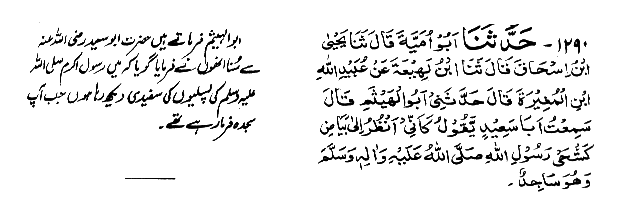 ١٢٩٠- حَدَّثَنَا اَبُوْ اُمَيَّةَ قَالَ ثَنَا يَحْيٰى
ابْنُ اِسْحَاقَ قَالَ ثَنَا ابْنُ لَهِيْعَةَ عَنْ عُبَيْدِ اللهِ
ابْنِ الْمُغِيْرَةِ قَالَ حَدَّثَنِيْ اَبُوالْهَيْثَمِ قَالَ
سَمِعْتُ اَبَا سَعِيْدٍ يَقُوْلُ كَاَنِّيْ اَنْظُرُ اِلٰى بَيَاضِ
كَشْحَيْ رَسُوْلِ اللهِ صَلَّى اللهُ عَلَيْهِ وَاٰلِهٖ وَسَلَّمَ
وَهُوَ سَاجِدٌ۔
ابوالہیثم فرماتے ہیں حضرت ابو سعید رضی اللہ عنہ
سے سنا انھوں نے فرمایا گویا کہ میں رسول اکرم صلی اللہ
علیہ وسلم کی پسلیوں کی سفیدی دیکھ رہا ہوں جب آپ
سجدہ فرما رہے تھے۔